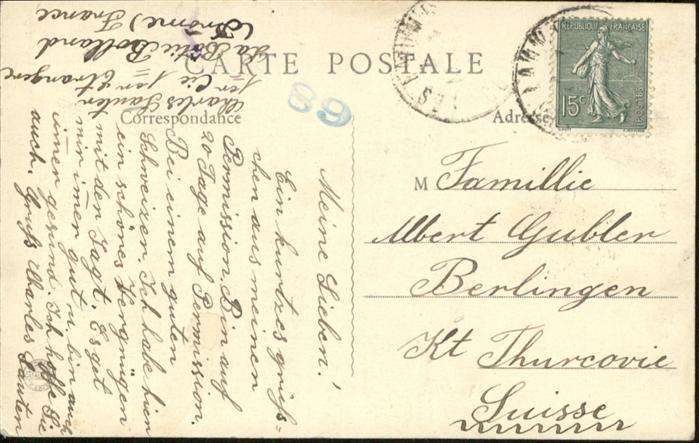 CARTE POSTALE
Correspondance
Adresse
REPUBLIQUE FRANÇAISE
15c
POSTES
89
M Famillie
Albert Gubler
Berlingen
Kt Thurcovie
Suisse
Meine Lieben!
Ein kurtzes grüss-
chen aus meinen
Permission. Bin auf
20 Tage auf Permission.
Bei einem guten
Schweizer. Ich habe hier
ein schönes Vergnügen
mit den Jagt. Es get
mir imer gut u. bin auch
imer gesund. Ich hoffe Sie
auch. Gruß Charles Sauter
Charles Sauter
1er Cie 1er Etrangere
La Botie Rolland
France